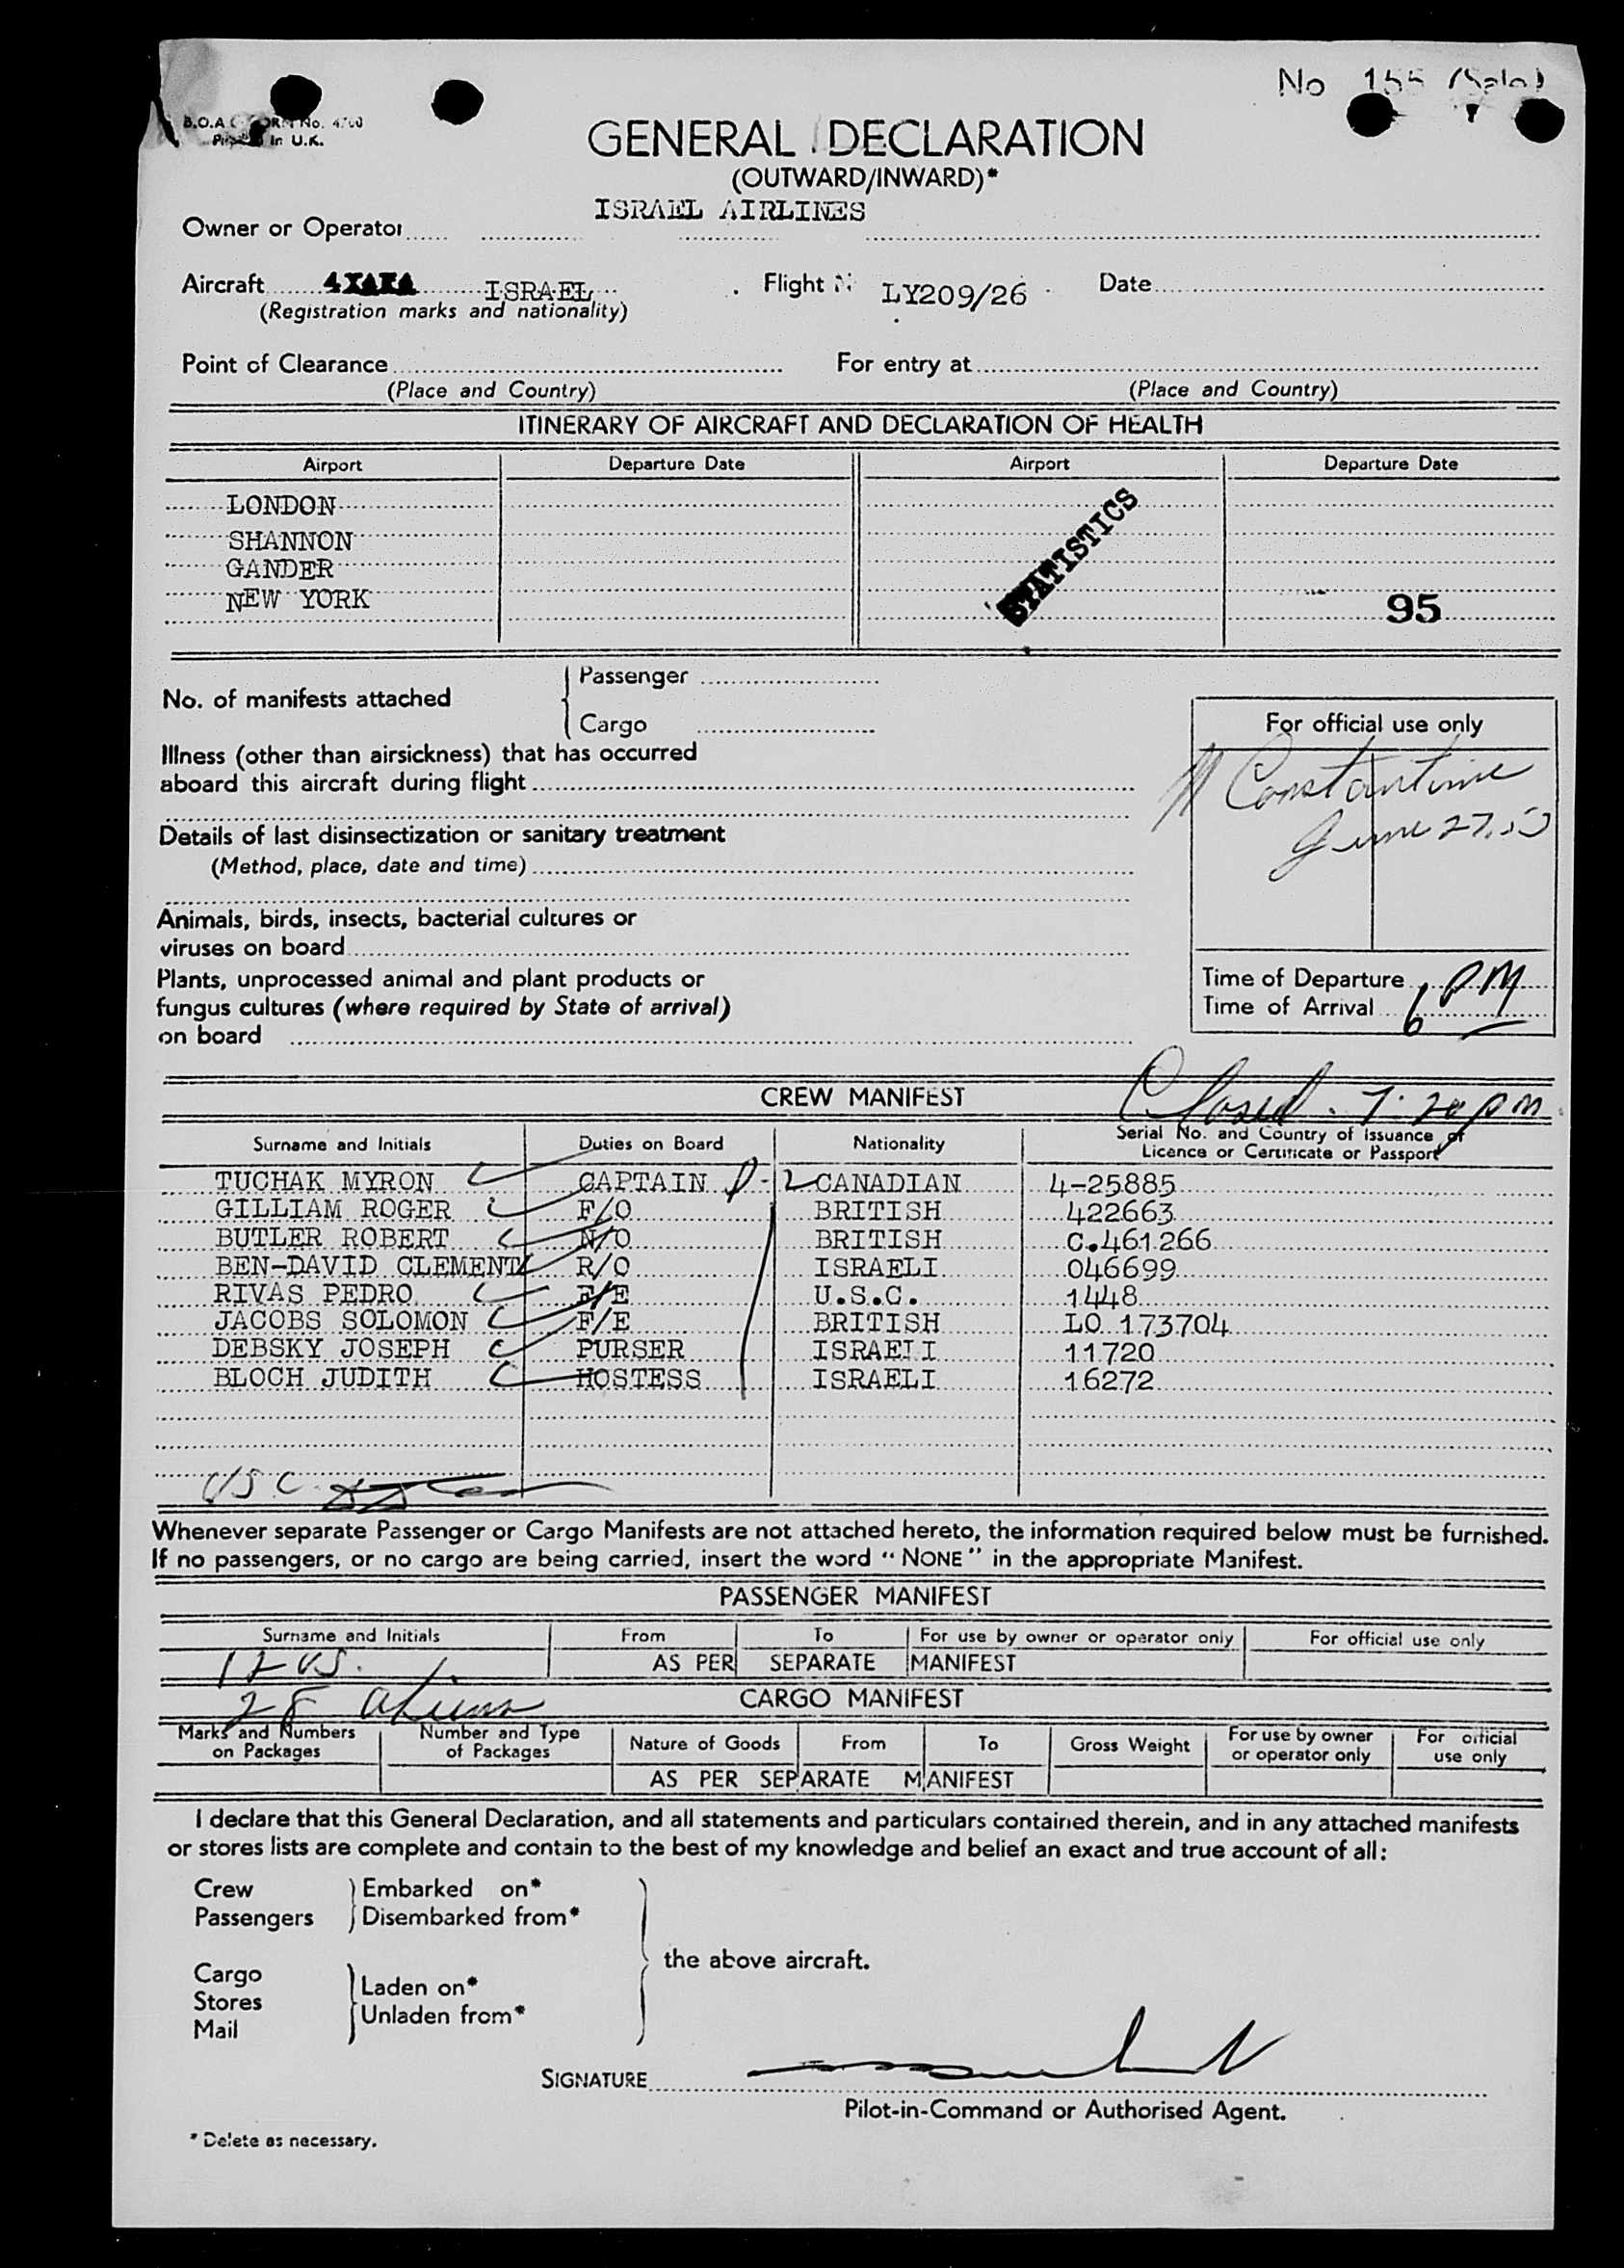 No 155
B.O.A.C. FORM No. 4700
Printed in U.K.
GENERAL DECLARATION
(OUTWARD/INWARD)*
ISRAEL AIRLINES
Owner or Operator
Aircraft 4XAKA ISRAEL Flight LY209/26 Date
(Registration marks and nationality)
Point of Clearance For entry at
(Place and Country) (Place and Country)
ITINERARY OF AIRCRAFT AND DECLARATION OF HEALTH
Airport Departure Date Airport Departure Date
LONDON
SHANNON
GANDER
NEW YORK
STATISTICS
95
No. of manifests attached
Passenger
Cargo
Illness (other than airsickness) that has occurred
aboard this aircraft during flight
Details of last disinsectization or sanitary treatment
(Method, place, date and time)
Animals, birds, insects, bacterial cultures or
viruses on board
Plants, unprocessed animal and plant products or
fungus cultures (where required by State of arrival)
on board
For official use only
Constantine
June 27.
Time of Departure
Time of Arrival 6 PM
Closed. 7:20 pm.
CREW MANIFEST
Surname and Initials Duties on Board Nationality Serial No. and Country of Issuance of
Licence or Certificate or Passport
TUCHAK MYRON CAPTAIN CANADIAN 4-25885
GILLIAM ROGER F/O BRITISH 422663
BUTLER ROBERT N/O BRITISH C.461266
BEN-DAVID CLEMENT R/O ISRAELI 046699
RIVAS PEDRO F/E U.S.C. 1448
JACOBS SOLOMON F/E BRITISH LO 173704
DEBSKY JOSEPH PURSER ISRAELI 11720
BLOCH JUDITH HOSTESS ISRAELI 16272
USC
Whenever separate Passenger or Cargo Manifests are not attached hereto, the information required below must be furnished.
If no passengers, or no cargo are being carried, insert the word "NONE" in the appropriate Manifest.
PASSENGER MANIFEST
Surname and Initials From To For use by owner or operator only For official use only
AS PER SEPARATE MANIFEST
12 US.
28 aliens
CARGO MANIFEST
Marks and Numbers on Packages Number and Type of Packages Nature of Goods From To Gross Weight For use by owner or operator only For official use only
AS PER SEPARATE MANIFEST
I declare that this General Declaration, and all statements and particulars contained therein, and in any attached manifests
or stores lists are complete and contain to the best of my knowledge and belief an exact and true account of all:
Crew Embarked on*
Passengers Disembarked from*
the above aircraft.
Cargo
Stores Laden on*
Mail Unladen from*
SIGNATURE
Pilot-in-Command or Authorised Agent.
* Delete as necessary.